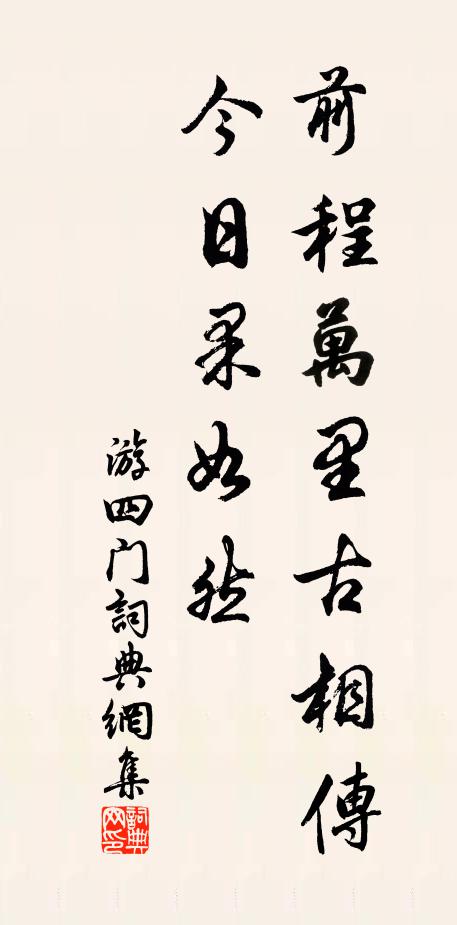 前程萬里古相傳
今日果如然
游四门詞典網集
詞典网印